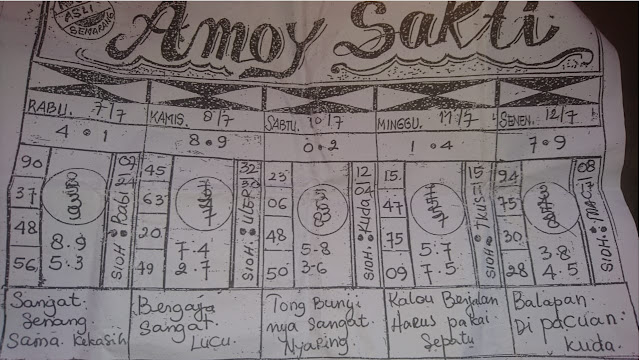 ASLI
SEMARANG
Amoy Sakti
RABU. 7/7
KAMIS. 8/7
SABTU. 10/7
MINGGU. 11/7
SENEN. 12/7
4 • 1
8 • 9
0 • 2
1 • 4
7 • 9
90
37
48
56
8.9
5.3
SIOH: Babi
45
63
20
49
7
7.4
2.7
SIOH: ULER
32
23
06
48
50
5.8
3-6
SIOH: Kuda
12
04
15.
47
75
09
5.7
7.5
SIOH: tkus
15
94
75
30
28
3.8
4.5
SIOH:
08
Sangat.
Senang
Sama. kekasih
Bergaya
Sangat.
Lucu.
Tong Bunyi
nya Sangat.
Nyaring.
Kalou Berjalan
Harus pakai
Sepatu
Balapan.
Di pacuan.
kuda.